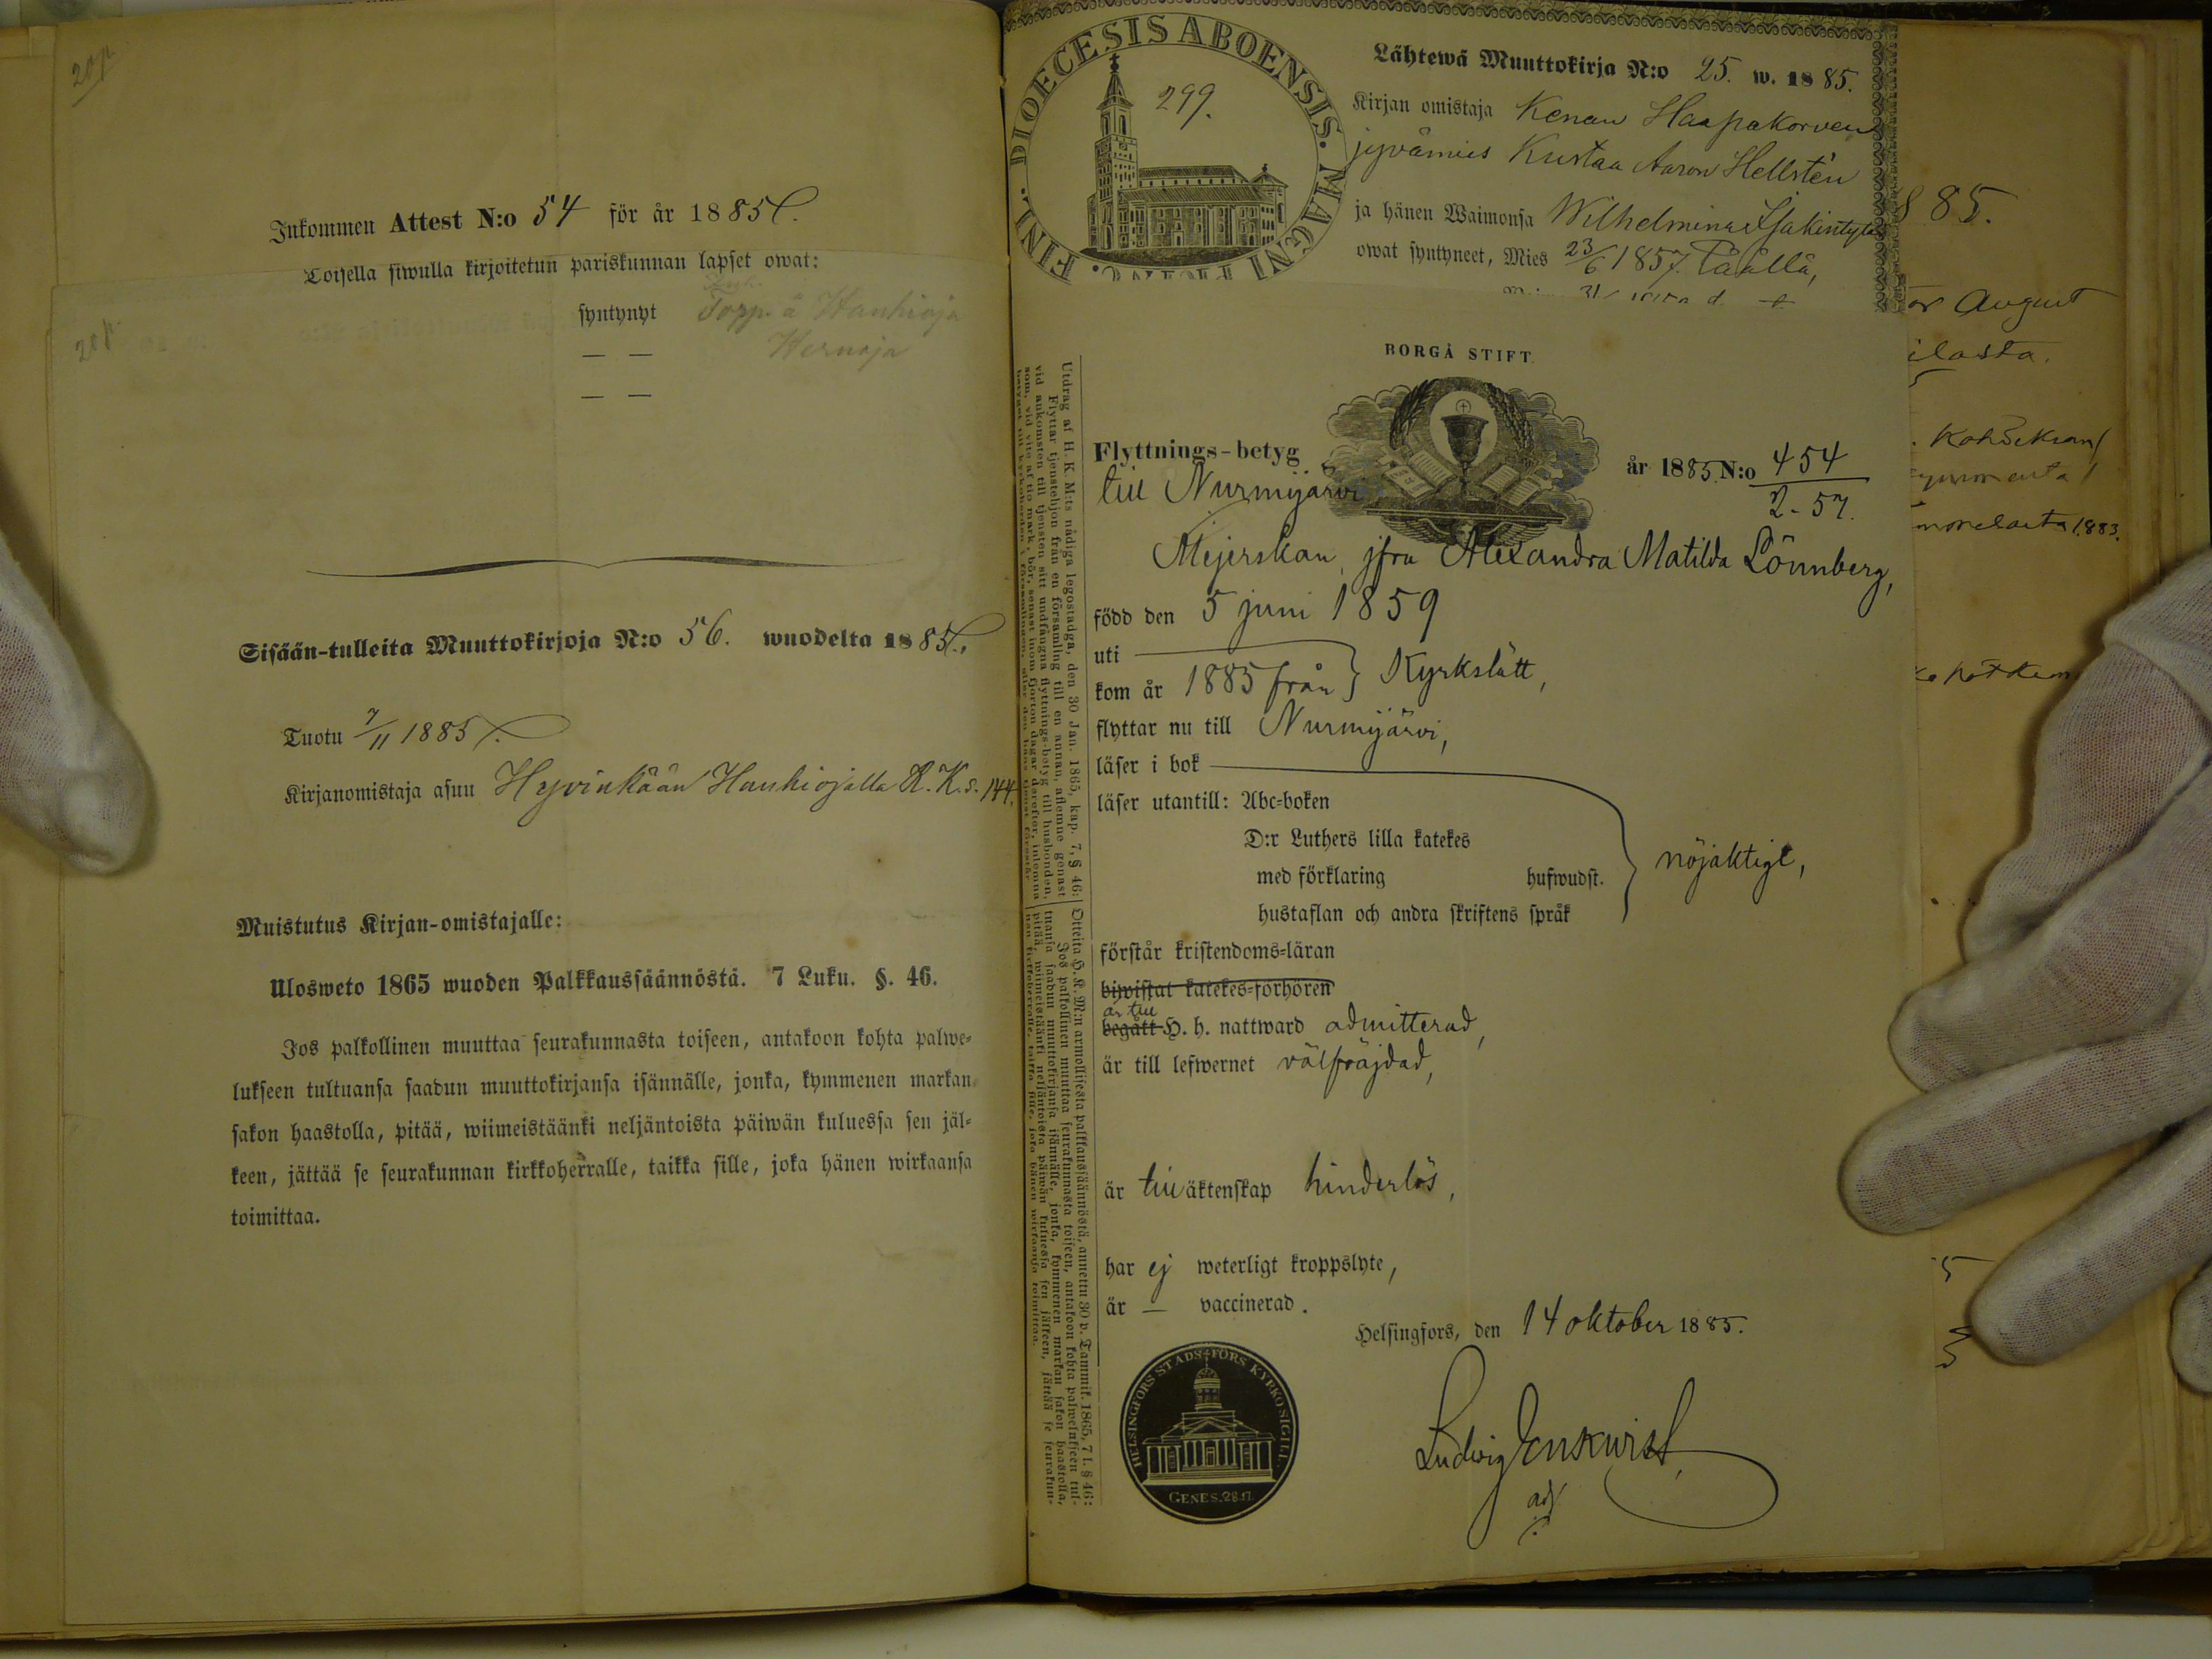 20 p
Inkommen Attest N:o 54 för år 1885
Toisella siwulla kirjoitetun pariskunnan lapset owat:
syntynyt Torp. å Hanhioja
— —
— —
20 p
Sisään-tulleita Muuttokirjoja N:o 56. wuodelta 1885.
Tuotu 7/11 1885.
Kirjanomistaja asuu Hyvinkään Hanhiojalla R. K. s. 144.
Muistutus Kirjan-omistajalle:
Ulosweto 1865 wuoden Palkkaussäännöstä. 7 Luku. §. 46.
Jos palkollinen muuttaa seurakunnasta toiseen, antakoon kohta palwe-
lukseen tultuansa saadun muuttokirjansa isännälle, jonka, kymmenen markan
sakon haastolla, pitää, wiimeistäänki neljäntoista päiwän kuluessa sen jäl-
keen, jättää se seurakunnan kirkkoherralle, taikka sille, joka hänen wirkaansa
toimittaa.
FINL. DIOECESIS ABOENSIS. MAGNI
299.
Lähtewä Muuttokirja N:o 25. w. 1885.
Kirjan omistaja Kenan Haapakorven
jyvämies Kustaa Aaron Hellstén
ja hänen Waimonsa Wilhelmina
owat syntyneet, Mies 23/6 1857. Täällä,
BORGÅ STIFT.
Flyttnings-betyg år 1885 N:o 454
till Nurmijärvi 2-57.
Mejerskan, jfru Alexandra Matilda Lönnberg,
född den 5 juni 1859
uti
kom år 1885 från } Kyrkslätt,
flyttar nu till Nurmijärvi,
läser i bok
läser utantill: Abc-boken
D:r Luthers lilla katekes
med förklaring hufwudst.
nöjaktigt,
hustaflan och andra skriftens språk
förstår kristendoms-läran
biwistat katekes-förhören
är till
begått H. h. nattward admitterad,
är till lefwernet välfräjdad,
är till äktenskap hinderlös,
har ej weterligt kroppslyte,
är — vaccinerad.
Helsingfors, den 14 oktober 1885.
Ludwig Enskwist
adj.
HELSINGFORS STADS-FÖRS KYRKO SIGILL.
GENES. 28.17.
Utdrag af H. K. M:ts nådiga legostadga, den 30 Jan. 1865, kap. 7, § 46:
Flyttar tjenstehjon från en församling till en annan, aflemne genast
vid ankomsten till tjensten sitt undfångna flyttnings-betyg till husbonden,
som, vid vite af tio mark, bör, senast inom fjorton dagar derefter, inlemna
Otteita H. K. M:n armollisesta palkkaussäännöstä, annettu 30 p. Tammik. 1865, 7 l. § 46:
Jos palkollinen muuttaa seurakunnasta toiseen, antakoon kohta palwelukseen tul-
tuansa saadun muuttokirjansa isännälle, jonka, kymmenen markan sakon haastolla,
pitää, wiimeistäänki neljäntoista päiwän kuluessa sen jälkeen, jättää se seurakun-
nan kirkkoherralle, taikka sille, joka hänen wirkaansa toimittaa.
885.
or August
ilasta.
1883.